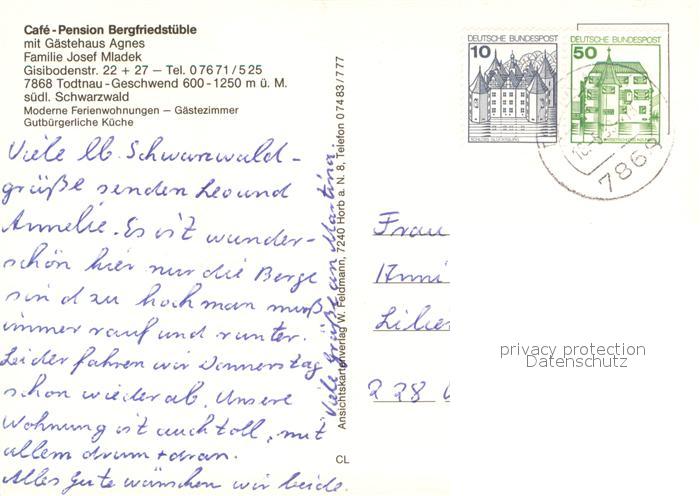 Café-Pension Bergfriedstüble
mit Gästehaus Agnes
Familie Josef Mladek
Gisibodenstr. 22 + 27 – Tel. 07671/525
7868 Todtnau-Geschwend 600-1250 m ü. M.
südl. Schwarzwald
Moderne Ferienwohnungen – Gästezimmer
Gutbürgerliche Küche
Viele lb. Schwarzwald-
grüße senden Leo und
Annelie. Es ist wunder-
schön hier nur die Berge
sind zu hoch man muß
immer rauf und runter.
Leider fahren wir Donnerstag
schon wieder ab. Unsere
Wohnung ist auch toll, mit
allem drum + dran.
Alles Gute wünschen wir beide.
Viele Grüße an Martina.
Ansichtskartenverlag W. Feldmann, 7240 Horb a. N. 8, Telefon 07483/777
CL
DEUTSCHE BUNDESPOST
10
SCHLOSS GLÜCKSBURG
DEUTSCHE BUNDESPOST
50
7868
Frau
Anni
228
privacy protection
Datenschutz